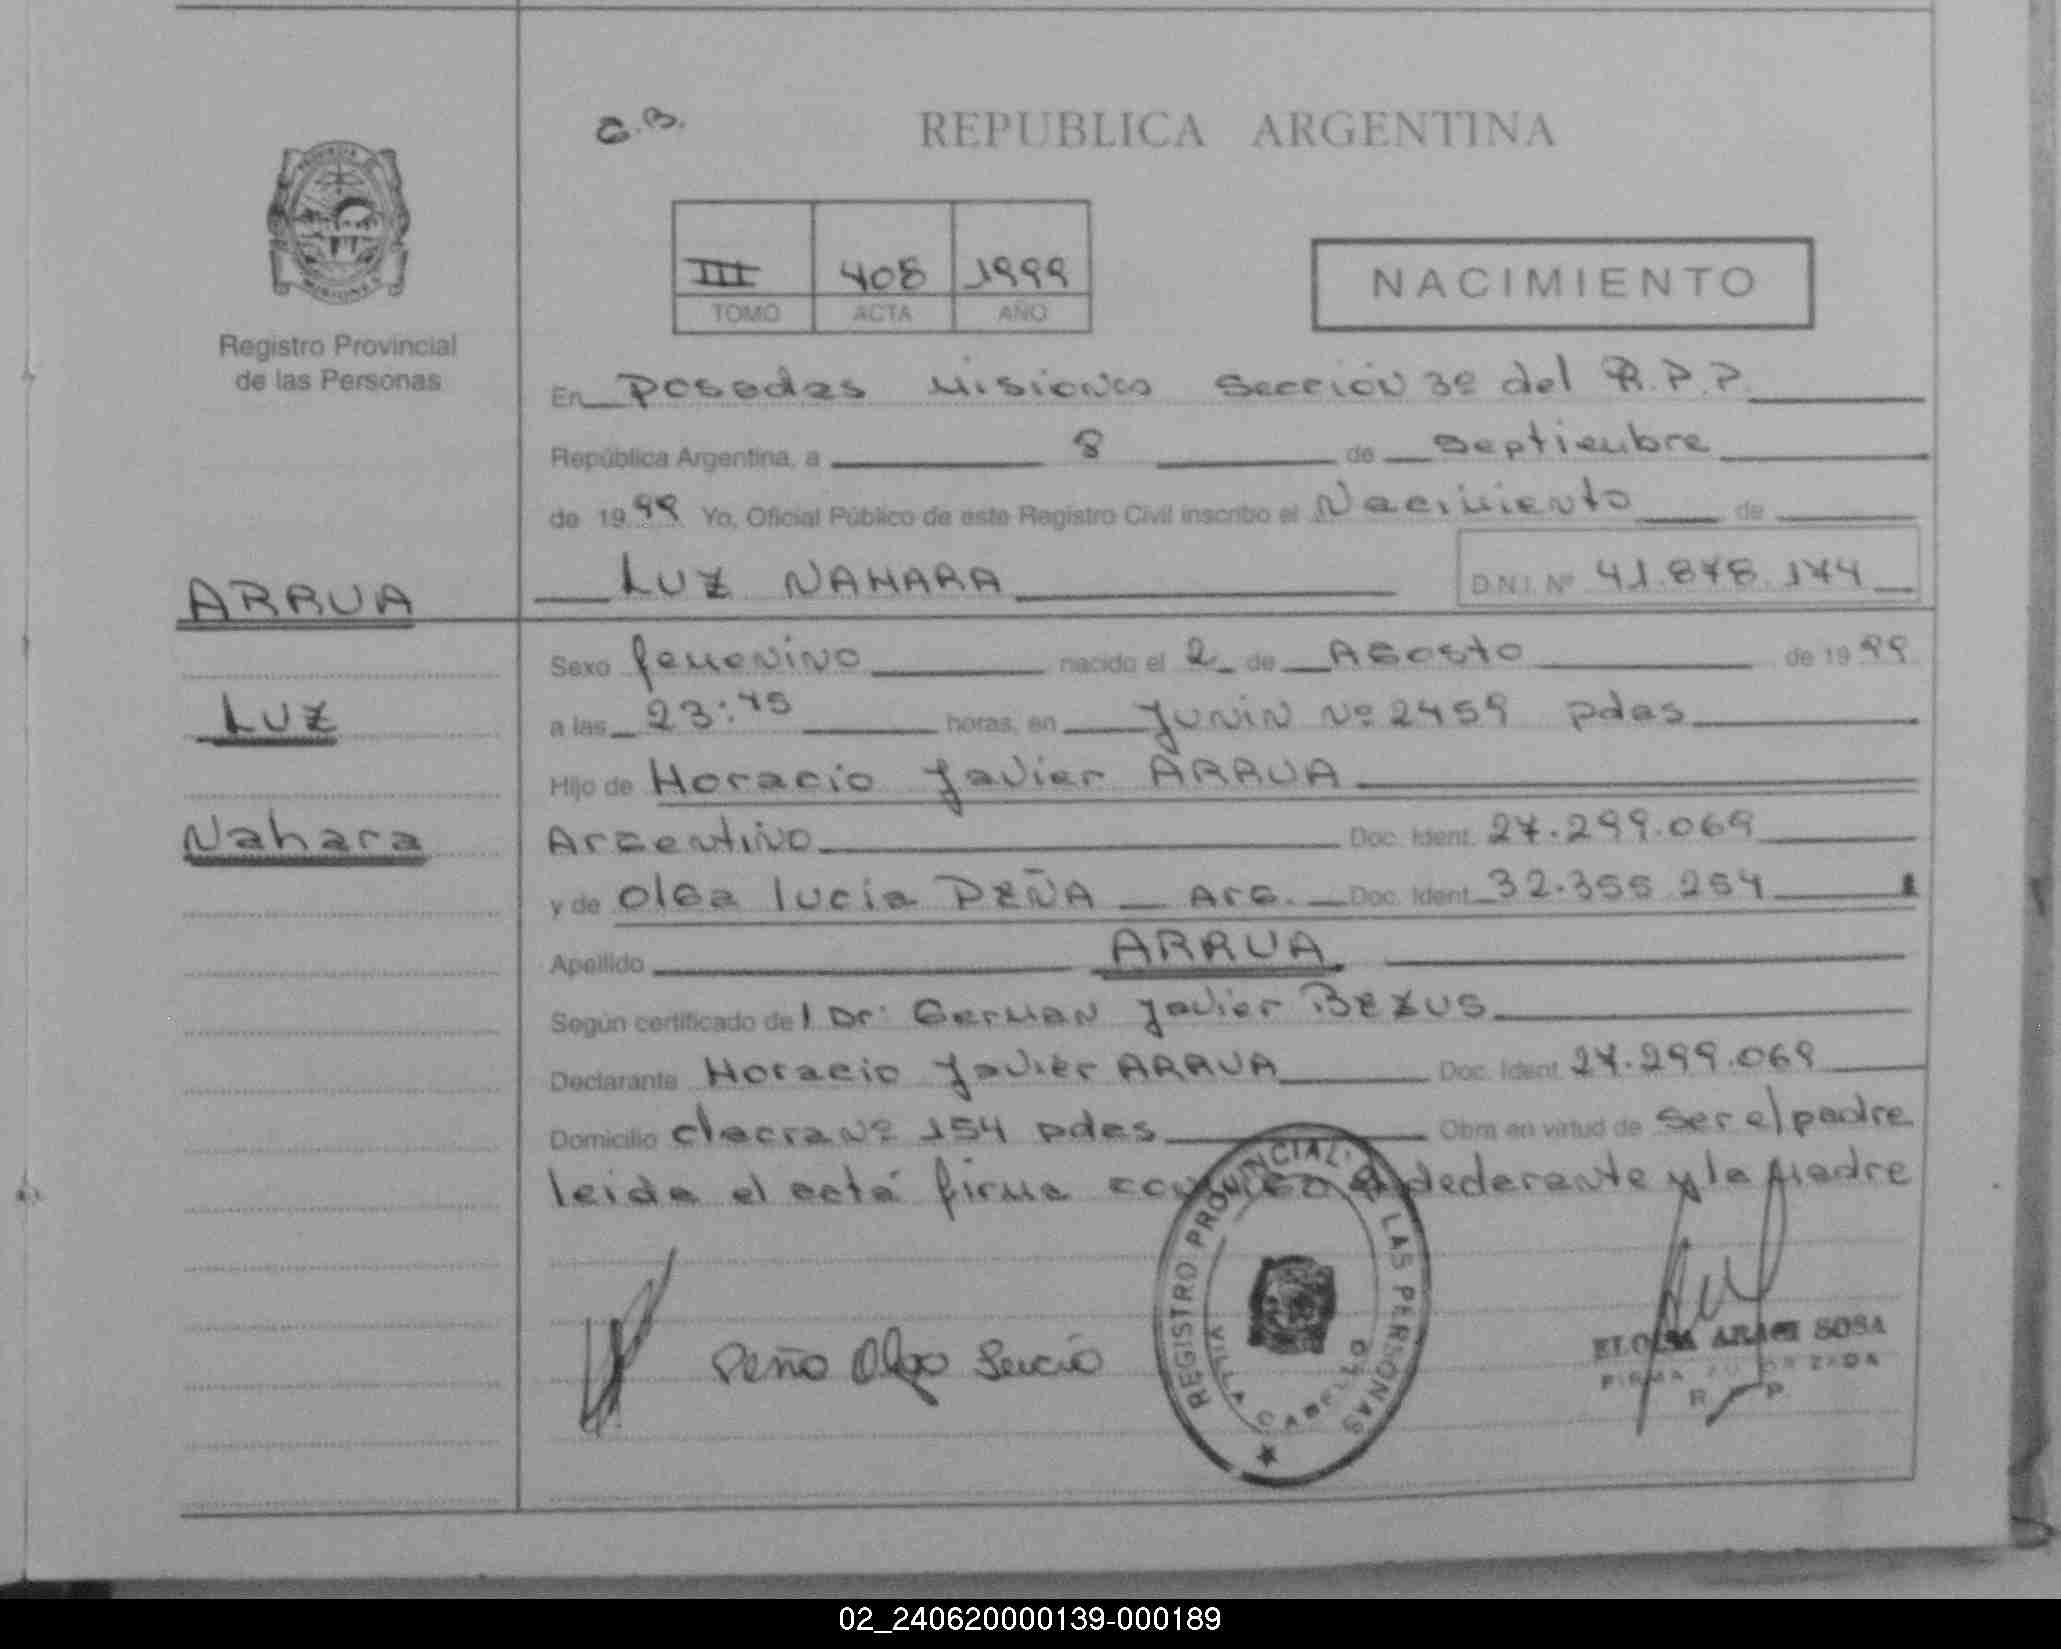 G.B.
REPUBLICA ARGENTINA
III 408 1999
TOMO ACTA AÑO
NACIMIENTO
Registro Provincial
de las Personas
En Posadas Misiones Sección 3º del R.P.P.
República Argentina, a 8 de septiembre
de 1999 Yo, Oficial Público de este Registro Civil inscribo el Nacimiento de
ARRUA
LUZ NAHARA D.N.I. Nº 41.878.174
Sexo femenino nacido el 2 de Agosto de 1999
Luz
a las 23:45 horas, en Junin Nº 2459 pdas
Hijo de Horacio Javier ARRUA
Nahara
Argentino Doc. Ident. 27.299.069
y de Olga lucia PEÑA Arg. Doc. Ident. 32.355.254
Apellido ARRUA
Según certificado del Dr. German Javier BEZUS
Declarante Horacio Javier ARRUA Doc. Ident. 27.299.069
Domicilio chacra Nº 154 pdas Obra en virtud de ser el padre
leida el acta firma conmigo el declarante y la madre
Peña Olga Lucia
REGISTRO PROVINCIAL DE LAS PERSONAS
VILLA CABELLO
ELOISA ARACI SOSA
FIRMA AUTORIZADA
R. P.
02_240620000139-000189